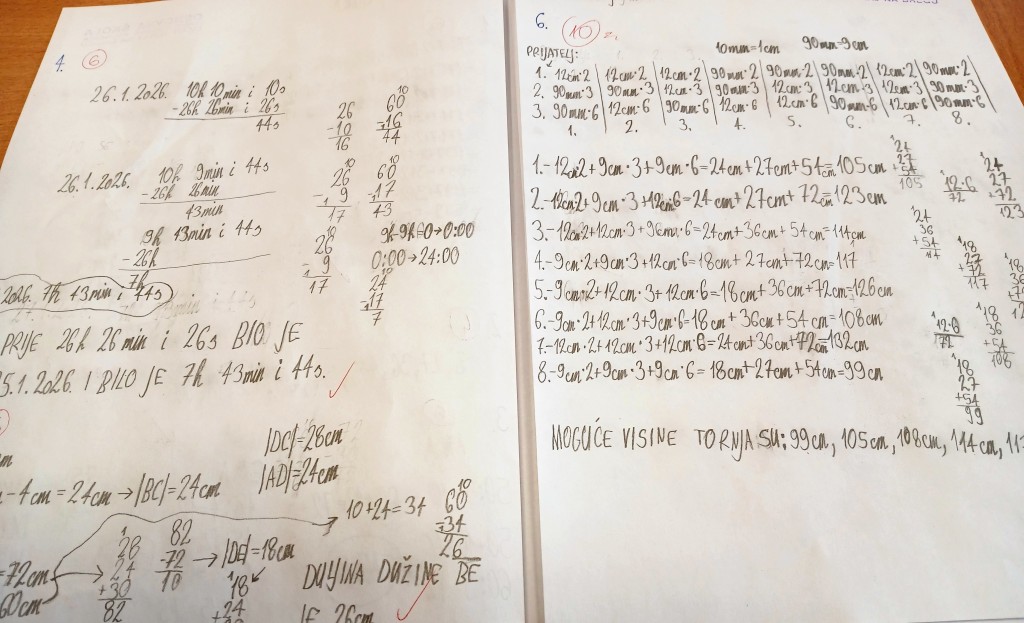 4. 6
26.1.2026. 10h 10min i 10s
-26h 26min i 26s
44s
26
-10
16
60
-16
44
26.1.2026. 10h 9min i 44s
-26h 26min
43min
26
- 9
17
60
-17
43
9h 43min i 44s
-26h
7h
26
- 9
17
9h-9h=0→0:00
0:00→24:00
24
-17
7
2026. 7h 43min i 44s
PRIJE 26h 26 min i 26s BILO JE
5.1.2026. I BILO JE 7h 43min i 44s.
|DC|=28cm
|AD|=24cm
- 4cm = 24cm → |BC|=24cm
10+24=34
60
-34
26
=72cm
60cm
28
24
+30
82
82
-72
10
→ |DE|=18cm
18
+24
DULJINA DUŽINE BE
JE 26cm
6. 10
PRIJATELJ:
10mm=1cm 90mm=9cm
1. 12cm·2 | 12cm·2 | 12cm·2 | 90mm·2 | 90mm·2 | 90mm·2 | 12cm·2 | 90mm·2
2. 90mm·3 | 90mm·3 | 12cm·3 | 90mm·3 | 12cm·3 | 12cm·3 | 12cm·3 | 90mm·3
3. 90mm·6 | 12cm·6 | 90mm·6 | 12cm·6 | 12cm·6 | 90mm·6 | 12cm·6 | 90mm·6
1. 2. 3. 4. 5. 6. 7. 8.
1.-12cm·2+9cm·3+9cm·6=24cm+27cm+54cm=105cm
2.-12cm·2+9cm·3+12cm·6=24cm+27cm+72cm=123cm
3.-12cm·2+12cm·3+9cm·6=24cm+36cm+54cm=114cm
4.-9cm·2+9cm·3+12cm·6=18cm+27cm+72cm=117
5.-9cm·2+12cm·3+12cm·6=18cm+36cm+72cm=126cm
6.-9cm·2+12cm·3+9cm·6=18cm+36cm+54cm=108cm
7.-12cm·2+12cm·3+12cm·6=24cm+36cm+72cm=132cm
8.-9cm·2+9cm·3+9cm·6=18cm+27cm+54cm=99cm
24
27
+54
105
12·6
72
24
27
+72
123
24
36
+54
18
27
+72
117
18
36
12·6
72
18
36
+54
108
18
27
+54
99
MOGUĆE VISINE TORNJA SU: 99cm, 105cm, 108cm, 114cm, 117